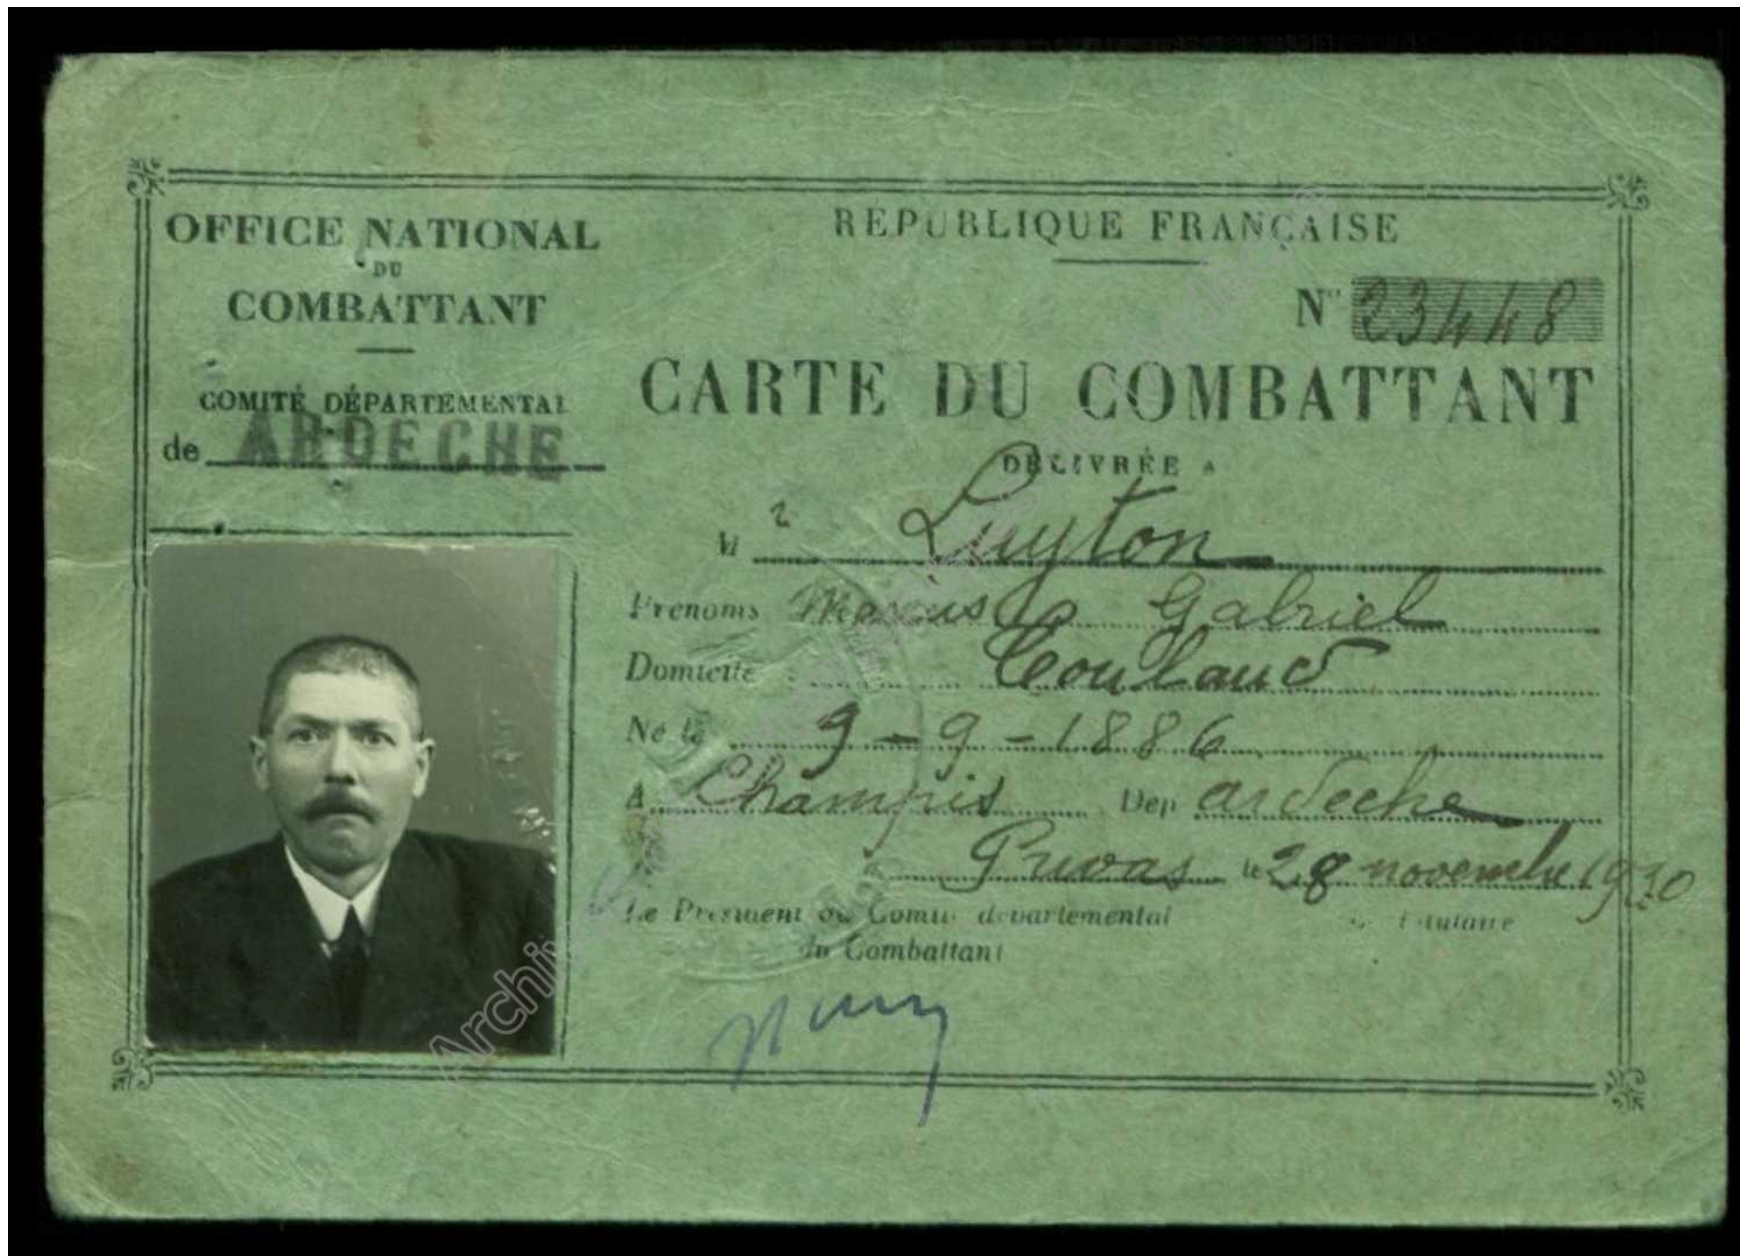 OFFICE NATIONAL
DU
COMBATTANT
COMITÉ DÉPARTEMENTAL
de ARDECHE
RÉPUBLIQUE FRANÇAISE
N° 23448
CARTE DU COMBATTANT
DÉLIVRÉE A
Mr Luyton
Prénoms Marius Gabriel
Domicile : Toulaud
Né le 9-9-1886
A Champis Dep ardeche
Privas le 28 novembre 1930
Le Président du Comité départemental
du Combattant
Le Titulaire